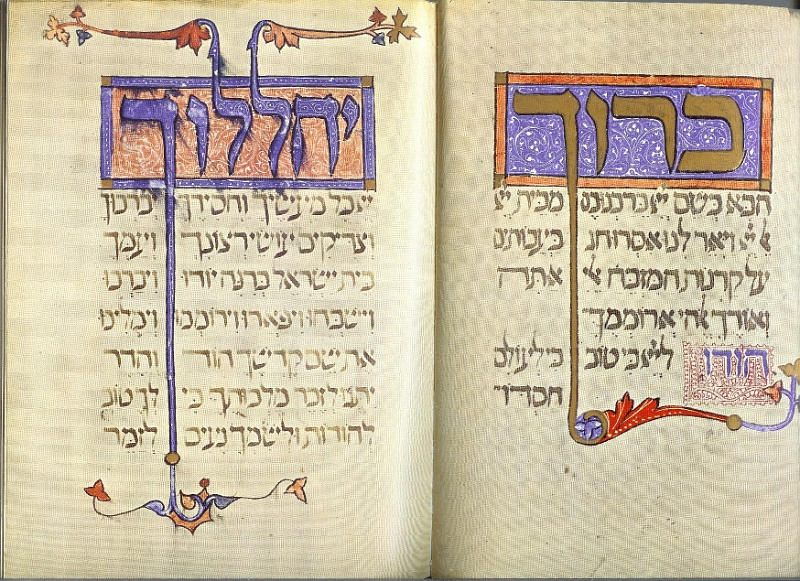 ברוך
הבא בשם יי ברכנוכם מבית יי
אל יי ויאר לנו אסרו חג בעבותים
על קרנות המזבח אלי אתה
ואודך אלהי ארוממך
הודו ליי כי טוב כי לעולם
חסדו
יהללוך
יי כל מעשיך וחסידיך יברכוך
וצדיקים עושי רצונך ועמך
בית ישראל ברנה יודו ויברכו
וישבחו ויפארו וירוממו וימליכו
את שם קדשך הוד והדר
יתנו לזכר מלכותך כי לך טוב
להודות ולשמך נעים לזמר